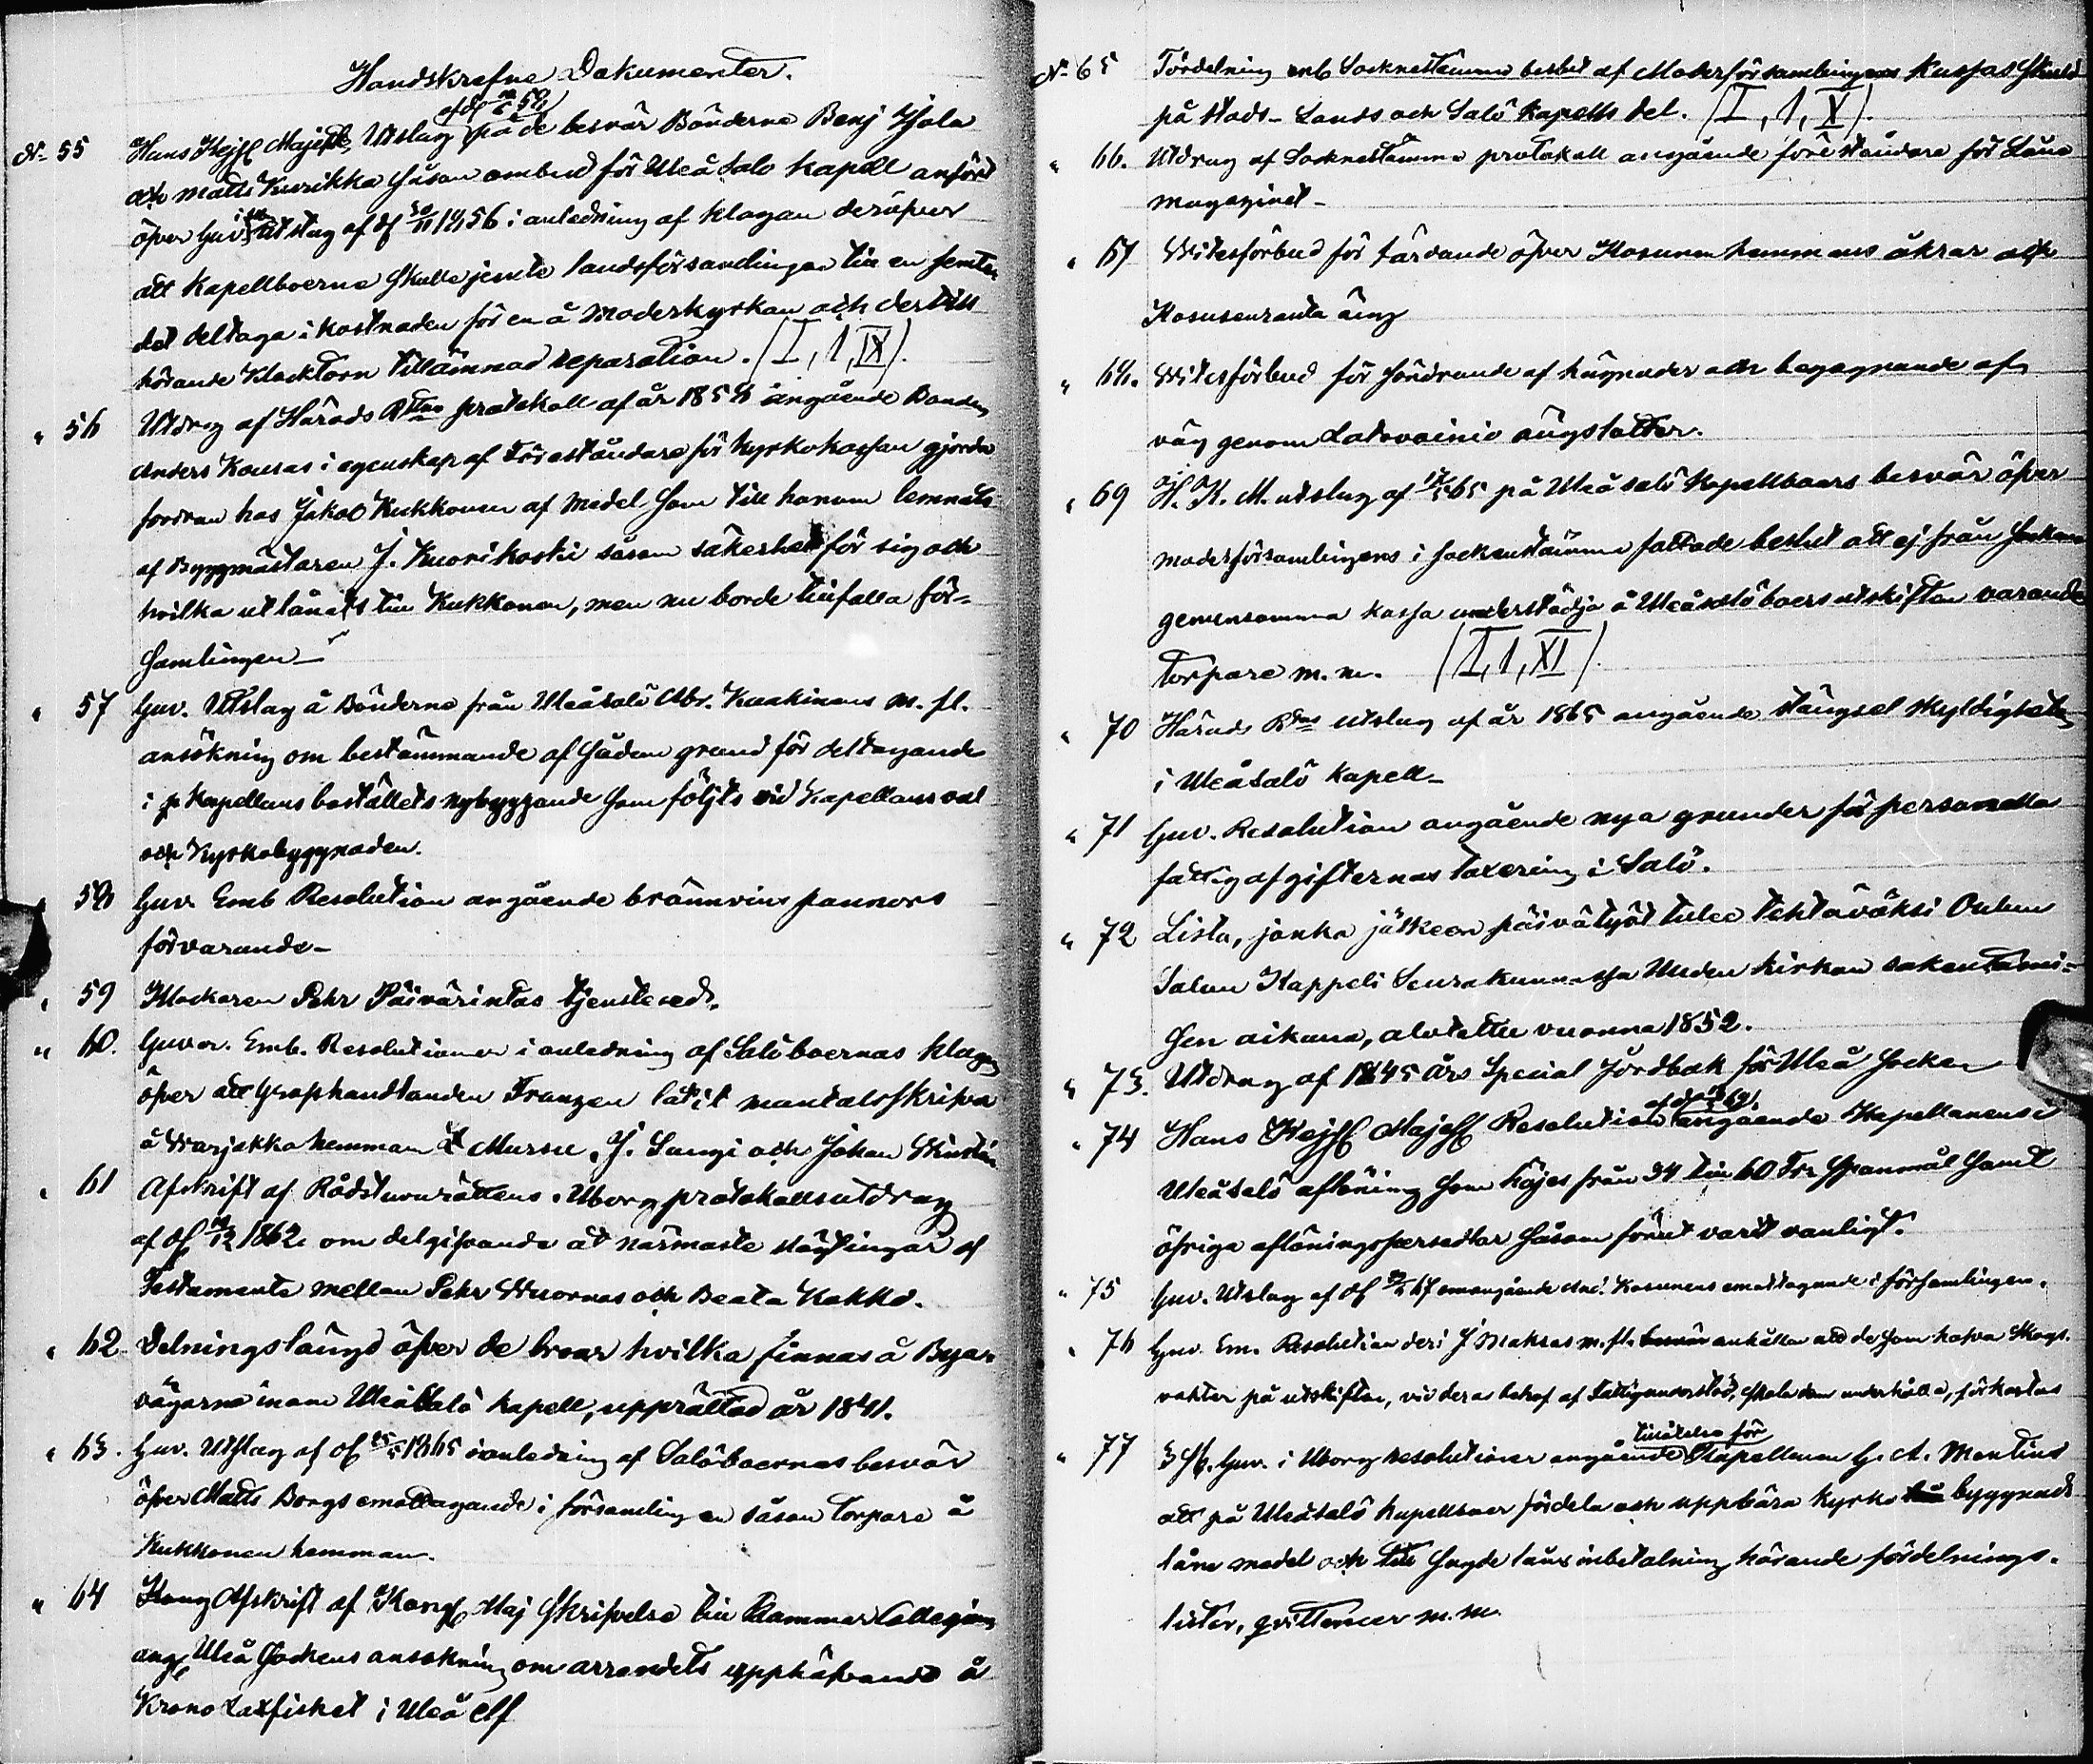 Handskrefne Dokumenter.
N. 55 Hans Kejs Majestts Utslag på de besvär Bönderne Benj Hjola
och Matts Kurikka såsom ombud för Uleå Salo Kapell anfört
öfver Guv. Utslag af d 1856 i anledning af klagan deröfver
att Kapellboerne skulle jemte landsförsamlingen till en femte
del deltaga i kostnaden för en å Moderkyrkan och dertill
hörande Klocktorn tillämnad reparation. (I, 1, IX).
" 56 Utdrag af Härads Rttns protokoll af år 1858 angående Bonden
Anders Kouras i egenskap af Föreståndare för kyrkokassan gjorda
fordran hos Jakob Kukkonen af medel som till honom lemnats
af Byggmästaren J. Kuorikoski såsom säkerhet för sig och
hvilka utlånats till Kukkonen, men nu borde tillfalla för-
samlingen
" 57 Guv. Utslag å Bönderne från Uleåsalo Abr. Kaakinens m. fl.
ansökning om bestämmande af sådan grund för deltagande
i Kapellans boställets nybyggande som följts vid Kapellans val
och Kyrkobyggnaden.
" 58 Guv. Emb Resolution angående brännvins pannors
förvarande-
" 59 Klockaren Pehr Päivärintas tjensteed.
" 60. Guvor. Emb. Resolutioner i anledning af Salöboernas klagan
öfver att Grophandlanden Franzen låtit mantalsskrifva
å Varjakka hemman Mursu, J. Sangi och Johan
" 61 Afskrift af Rådstuvurättens i Uborg protokollsutdrag
af d 1862 om delgifvande åt närmaste släktingar af
Testamente mellan Pehr Wuornos och Beata Kakko.
" 62 Delningslängd öfver de broar hvilka finnas å Byar
vägarne inom Uleåsalo kapell, upprättad år 1841.
" 63. Guv. Utslag af d 25/5 1865 i anledning af Salöboernas besvär
öfver Matts Borgs emottagande i församlingen såsom torpare å
Kukkonen hemman.
" 64 Afskrift af Kongl Maj Skrifvelse till Kammar Collegium
ang Uleå Sockens ansökning om arrendets upphäfvande å
Krono Laxfisket i Uleå elf
N. 65 Fördelning enl Sockenstämmo beslut af Moderförsamlingens Kassas Skuld
på Stads- Lands och Salö Kapells del. (I, 1, X).
" 66. Utdrag af Sockenstämmo protokoll angående föreståndare för Låne
magazinet-
" 67 Vitesförbud för färdande öfver Kosunen hemmans åkrar och
Kosusenranta äng
" 68. Vitesförbud för förstörande af hägnader och begagnande af
väg genom Latovainio ängslotter.
" 69 H. K. M. utslag af 65 på Uleåsalö Kapellboers besvär öfver
moderförsamlingens i sockenstämma fattade beslut att ej från sockens
gemensamma kassa understödja å Uleåsalöboers utskiften varande
torpare m. m. (I, 1, XI).
" 70 Härads Rttns utslag af år 1865 angående stängsel skyldigheten
i Uleåsalö Kapell-
" 71 Guv. Resolution angående nya grunder för personella
fattigafgifternas taxering i Salö.
" 72 Lista, jonka jätkeen päivätyöt tulee tehtäväksi Oulun
Salon Kappeli Seurakunnassa Uuden kirkon rakentami-
sen aikana, alotettu vuonna 1852.
" 73. Utdrag af 1845 års Special Jordbok för Uleå Socken
" 74 Hans Kejs Majs Resolution angående Kapellanens i
Uleåsalö aflöning som höjes från 34 till 60 Tnr Spanmål samt
öfriga aflöningspersedlar såsom förut varit vanligt.
" 75 Guv. Utslag af d 67 angående And. Kosunens emottagande i församlingen.
" 76 Guv. Em. Resolution deri J Maksas m. fl. anhållen att de som hafva Skogs-
vakter på utskiften, vid deras behof af Fattigunderstöd, skola dem underhålla, förkastas
" 77 3 st. Guv. i Uborg resolutioner angående tillåtelse för Kapellanen G. A. Montins
att på Uleåsalö kapellboer fördela och uppbära Kyrko byggnads
låne medel och till sagde låns inbetalning hörande fördelnings-
listor, qvittencer m. m.